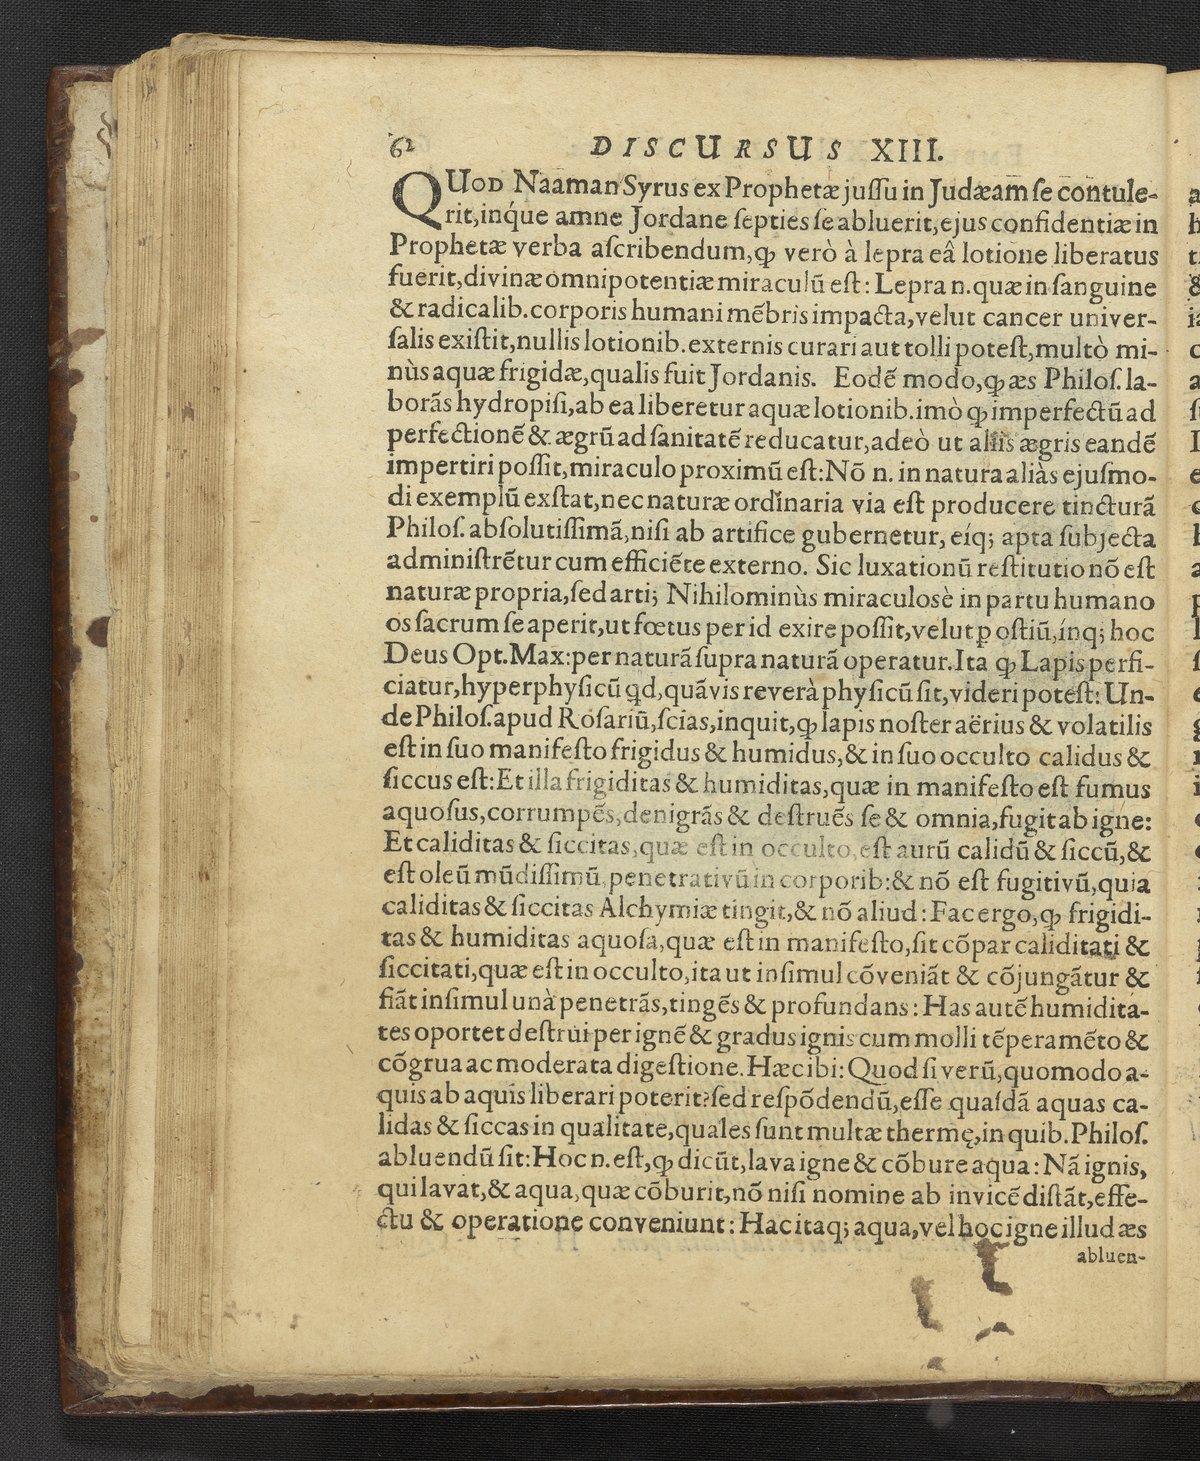 62 DISCURSUS XIII.
QUOD Naaman Syrus ex Prophetæ juſſu in Judæam ſe contule-
rit, inq́ue amne Jordane ſepties ſe abluerit, ejus confidentiæ in
Prophetæ verba aſcribendum, ꝙ verò à lepra eâ lotione liberatus
fuerit, divinæ omnipotentiæ miraculũ eſt: Lepra n. quæ in ſanguine
& radicalib. corporis humani mẽbris impacta, velut cancer univer-
ſalis exiſtit, nullis lotionib. externis curari aut tolli poteſt, multò mi-
nùs aquæ frigidæ, qualis fuit Jordanis. Eodẽ modo, ꝙ æs Philoſ. la-
borãs hydropiſi, ab ea liberetur aquæ lotionib. imò ꝙ imperfectũ ad
perfectionẽ & ægrũ ad ſanitatẽ reducatur, adeò ut aliis ægris eandẽ
impertiri poſſit, miraculo proximũ eſt: Nõ n. in natura aliàs ejuſmo-
di exemplũ exſtat, nec naturæ ordinaria via eſt producere tincturã
Philoſ. abſolutiſſimã, niſi ab artifice gubernetur, eíq; apta ſubjecta
adminiſtrẽtur cum efficiẽte externo. Sic luxationũ reſtitutio nõ eſt
naturæ propria, ſed arti; Nihilominùs miraculosè in partu humano
os ſacrum ſe aperit, ut fœtus per id exire poſſit, velut ꝑ oſtiũ, ínq; hoc
Deus Opt. Max: per naturã ſupra naturã operatur. Ita ꝙ Lapis perfi-
ciatur, hyperphyſicũ qd, quãvis reverà phyſicũ ſit, videri poteſt: Un-
de Philoſ. apud Roſariũ, ſcias, inquit, ꝙ lapis noſter aërius & volatilis
eſt in ſuo manifeſto frigidus & humidus, & in ſuo occulto calidus &
ſiccus eſt: Et illa frigiditas & humiditas, quæ in manifeſto eſt fumus
aquoſus, corrumpẽs, denigrãs & deſtruẽs ſe & omnia, fugit ab igne:
Et caliditas & ſiccitas, quæ eſt in occulto, eſt aurũ calidũ & ſiccũ, &
eſt oleũ mũdiſſimũ, penetrativũ in corporib: & nõ eſt fugitivũ, quia
caliditas & ſiccitas Alchymiæ tingit, & nõ aliud: Fac ergo, ꝙ frigidi-
tas & humiditas aquoſa, quæ eſt in manifeſto, ſit cõpar caliditati &
ſiccitati, quæ eſt in occulto, ita ut inſimul cõveniãt & cõjungãtur &
fiãt inſimul unà penetrãs, tingẽs & profundans: Has autẽ humidita-
tes oportet deſtrui per ignẽ & gradus ignis cum molli tẽperamẽto &
cõgrua ac moderata digeſtione. Hæc ibi: Quod ſi verũ, quomodo a-
quis ab aquis liberari poterit? ſed reſpõdendũ, eſſe quaſdã aquas ca-
lidas & ſiccas in qualitate, quales ſunt multæ thermę, in quib. Philoſ.
abluendũ ſit: Hoc n. eſt, ꝙ dicũt, lava igne & cõbure aqua: Nã ignis,
qui lavat, & aqua, quæ cõburit, nõ niſi nomine ab invicẽ diſtãt, effe-
ctu & operatione conveniunt: Hac itaq; aqua, vel hoc igne illud æs
abluen-